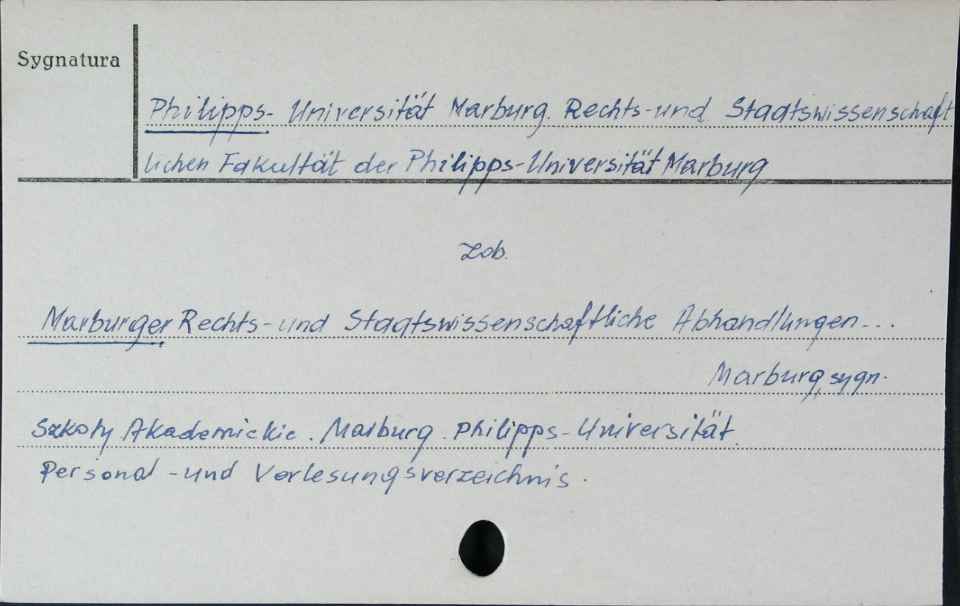 Sygnatura
Philipps- Universität Marburg. Rechts-und Staatswissenschaft
lichen Fakultät der Philipps-Universität Marburg
Zob.
Marburger Rechts-und Staatswissenschaftliche Abhandlungen...
Marburg, sygn.
Szkoły Akademickie. Marburg. Philipps-Universität.
Personal-und Vorlesungsverzeichnis.